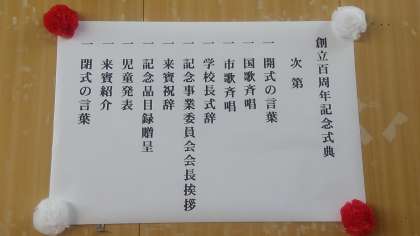 創立百周年記念式典
次第
一 開式の言葉
一 国歌斉唱
一 市歌斉唱
一 学校長式辞
一 記念事業委員会会長挨拶
一 来賓祝辞
一 記念品目録贈呈
一 児童発表
一 来賓紹介
一 閉式の言葉